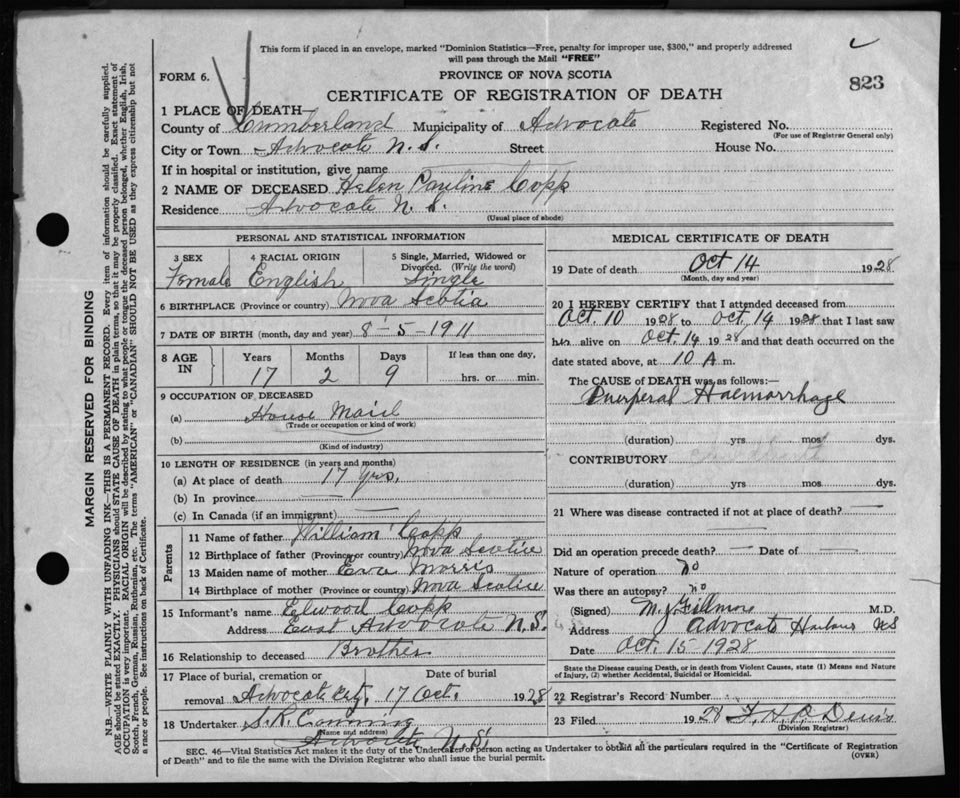 This form if placed in an envelope, marked "Dominion Statistics—Free, penalty for improper use, $300," and properly addressed
will pass through the Mail "FREE"
FORM 6.
PROVINCE OF NOVA SCOTIA
823
CERTIFICATE OF REGISTRATION OF DEATH
1 PLACE OF DEATH—
County of Cumberland Municipality of Advocate Registered No.
(For use of Registrar General only)
City or Town Advocate N.S. Street House No.
If in hospital or institution, give name
2 NAME OF DECEASED Helen Pauline Copp
Residence Advocate N.S.
(Usual place of abode)
PERSONAL AND STATISTICAL INFORMATION
3 SEX 4 RACIAL ORIGIN 5 Single, Married, Widowed or
Divorced. (Write the word)
Female English Single
6 BIRTHPLACE (Province or country) Nova Scotia
7 DATE OF BIRTH (month, day and year) 8-5-1911
8 AGE IN Years Months Days If less than one day,
17 2 9 hrs. or min.
9 OCCUPATION OF DECEASED
(a) House Maid
(Trade or occupation or kind of work)
(b)
(Kind of industry)
10 LENGTH OF RESIDENCE (in years and months)
(a) At place of death 17 yrs.
(b) In province
(c) In Canada (if an immigrant)
Parents
11 Name of father William Copp
12 Birthplace of father (Province or country) Nova Scotia
13 Maiden name of mother Morris
14 Birthplace of mother (Province or country) Nova Scotia
15 Informant's name Elwood Copp
Address East Advocate N.S.
16 Relationship to deceased Brother
17 Place of burial, cremation or Date of burial
removal Advocate 17 Oct. 1928
18 Undertaker S.R.
(Name and address)
Advocate N.S.
MEDICAL CERTIFICATE OF DEATH
19 Date of death Oct 14 1928
(Month, day and year)
20 I HEREBY CERTIFY that I attended deceased from
Oct. 10 1928 to Oct. 14 1928 that I last saw
her alive on Oct. 14 1928 and that death occurred on the
date stated above, at 10 A m.
The CAUSE of DEATH was as follows:—
Puerperal Haemorrhage
(duration) yrs mos dys.
CONTRIBUTORY
(duration) yrs mos dys.
21 Where was disease contracted if not at place of death?
Did an operation precede death? — Date of —
Nature of operation no
Was there an autopsy? no
(Signed) M.D.
Address Advocate Harbour NS
Date Oct. 15 1928
State the Disease causing Death, or in death from Violent Causes, state (1) Means and Nature
of Injury, (2) whether Accidental, Suicidal or Homicidal.
22 Registrar's Record Number
23 Filed 1928
(Division Registrar)
SEC. 46—Vital Statistics Act makes it the duty of the Undertaker or person acting as Undertaker to obtain all the particulars required in the "Certificate of Registration
of Death" and to file the same with the Division Registrar who shall issue the burial permit.
(OVER)
MARGIN RESERVED FOR BINDING
N.B.—WRITE PLAINLY WITH UNFADING INK—THIS IS A PERMANENT RECORD. Every item of information should be carefully supplied.
AGE should be stated EXACTLY. PHYSICIANS should STATE CAUSE OF DEATH in plain terms, so that it may be properly classified. Exact statement of
OCCUPATION is very important. RACIAL ORIGIN will be described by stating to what people or tongue the deceased person belonged, whether English, Irish,
Scotch, French, German, Russian, Ruthenian, etc. The terms "AMERICAN" or "CANADIAN" SHOULD NOT BE USED as they express citizenship but not
a race or people. See instructions on back of Certificate.